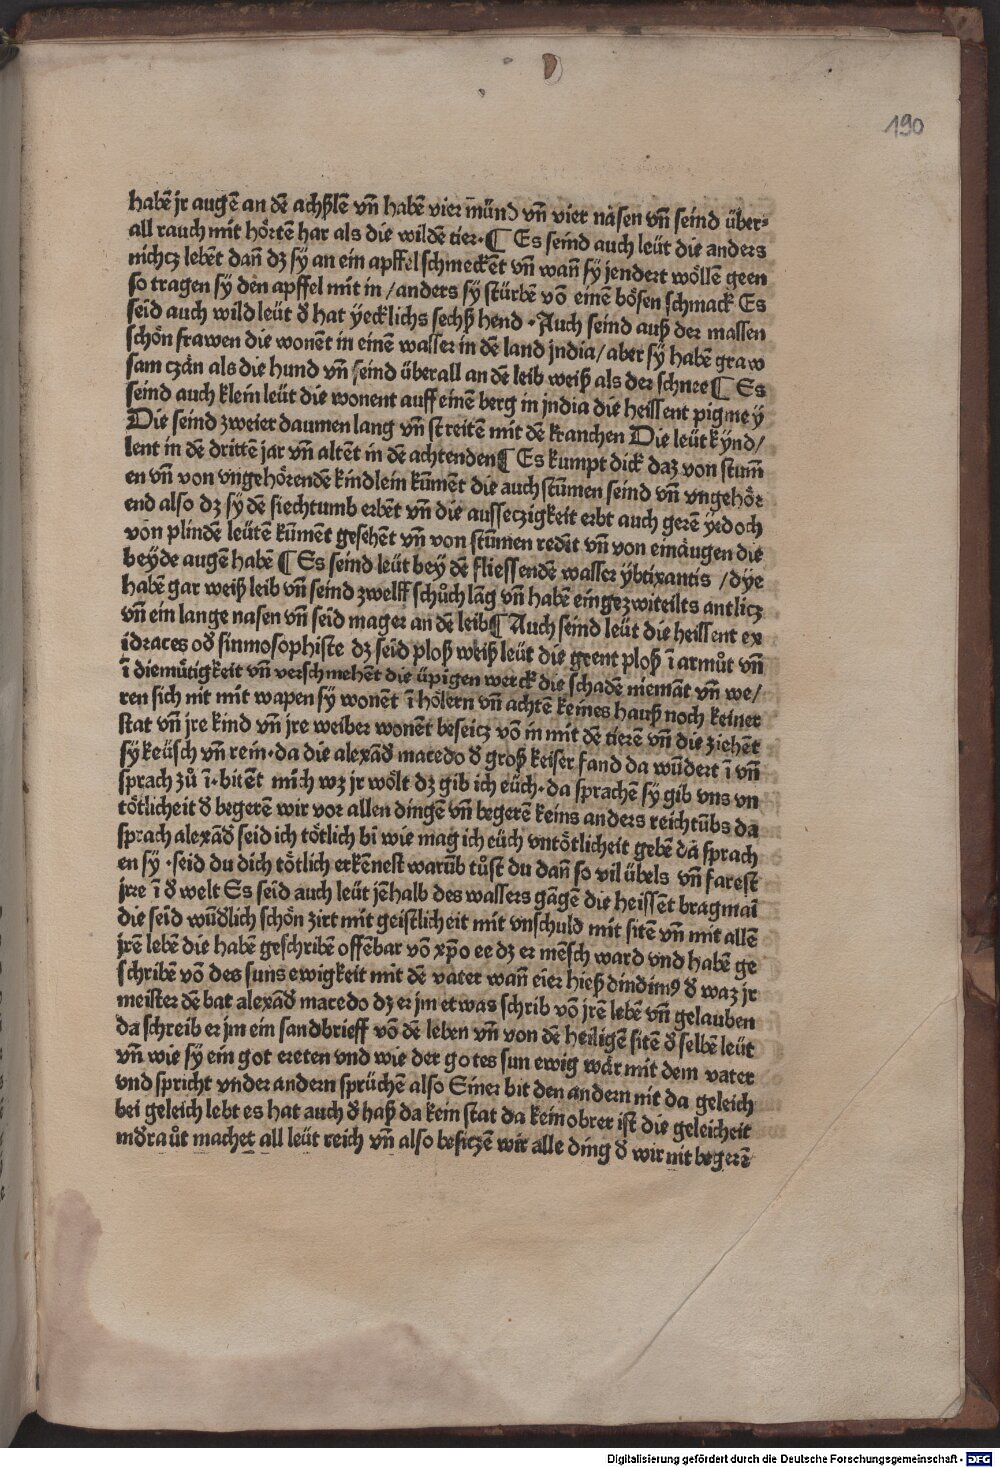 190
habē jr augē an dē achßlē vn̄ habē vier münd vn̄ vier näsen vn̄ seind über⸗
all rauch mit hörtē har als die wildē tier·¶ Es seind auch leüt die anders
nichcz lebēt dan̄ dz sÿ an ein apffel schmeckēt vn̄ wan̄ sÿ jendert wöllē geen
so tragen sÿ den apffel mit in /anders sÿ stürbē vō einē bösen schmack Es
seīd auch wild leüt đ hat ÿecklichs sechß hend ·Auch seind auß der massen
schön frawen die wonēt in einē wasser in dē land jndia/aber sÿ habē graw
sam czän als die hund vn̄ seind überall an dē leib weiß als der schnee¶ Es
seind auch klein leüt die wonent auff einē berg in jndia die heissent pigmeÿ
Die seind zweier daumen lang vn̄ streitē mit dē kranchen Die leüt kÿnd/
lent in dē drittē jar vn̄ altēt in dē achtenden¶ Es kumpt dick daz von stum̄
en vn̄ von vngehörendē kindlein kūmēt die auch stūmen seind vn̄ vngehör
end also dz sÿ dē siechtumb erbēt vn̄ die ausseczigkeit erbt auch gerē ÿedoch
von plindē leütē kūmēt gesehēt vn̄ von stūmen redēt vn̄ von einäugen die
beyde augē habē ¶ Es seind leüt beÿ dē fliessendē wasser ÿbtixantis /dÿe
habē gar weiß leib vn̄ seind zwelff schůch lāg vn̄ habē ein gezwiteilts antlicz
vn̄ ein lange nasen vn̄ seīd mager an dē leib¶ Auch seind leüt die heissent ex
idraces ođ sinmosophiste dz seīd ploß weiß leüt die geent ploß ī armůt vn̄
ī diemütigkeit vn̄ verschmehēt die üpigen werck die schadē niemāt vn̄ we/
ren sich nit mit wapen sÿ wonēt ī hölern vn̄ achtē keines hauß noch keiner
stat vn̄ jre kind vn̄ jre weiber wonēt beseicz vō in mit dē tierē vn̄ die ziehēt
sÿ keüsch vn̄ rein·da die alexāđ macedo đ groß keiser fand da wūdert ī vn̄
sprach zů ī·bitēt mich wz jr wölt dz gib ich eüch·da sprachē sÿ gib vns vn
tötlicheit đ begerē wir vor allen dingē vn̄ begerē keins anders reichtūbs da
sprach alexāđ seid ich tötlich bī wie mag ich eüch vntötlicheit gebē da sprach
en sÿ ·seid du dich tötlich erkēnest warūb tůst du dan̄ so vil übels vn̄ farest
jrre ī đ welt Es seīd auch leüt jēhalb des wassers gāgē die heissēt bragmaī
die seīd wūđlich schön zirt mit geistlicheit mit vnschuld mit sitē vn̄ mit allē
jrē lebē die habē geschribē offēbar vō xp̄o ee dz er mēsch ward vnd habē ge
schribē vō des suns ewigkeit mit dē vater wan̄ eīer hieß dindimꝰ đ waz jr
meister dē bat alexāđ macedo dz er jm etwas schrib vō jrē lebē vn̄ gelauben
da schreib er jm ein sandbrieff vō dē leben vn̄ von dē heiligē sitē đ selbē leüt
vn̄ wie sÿ ein got ereten vnd wie der gotes sun ewig wär mit dem vater
vnd spricht vnder andern sprüchē also Einer bit den andern nit da geleich
bei geleich lebt es hat auch đ haß da kein stat da kein obrer ist die geleicheit
mđ raůt machet all leüt reich vn̄ also besiczē wir alle ding đ wir nit begerē
Digitalisierung gefördert durch die Deutsche Forschungsgemeinschaft - DFG